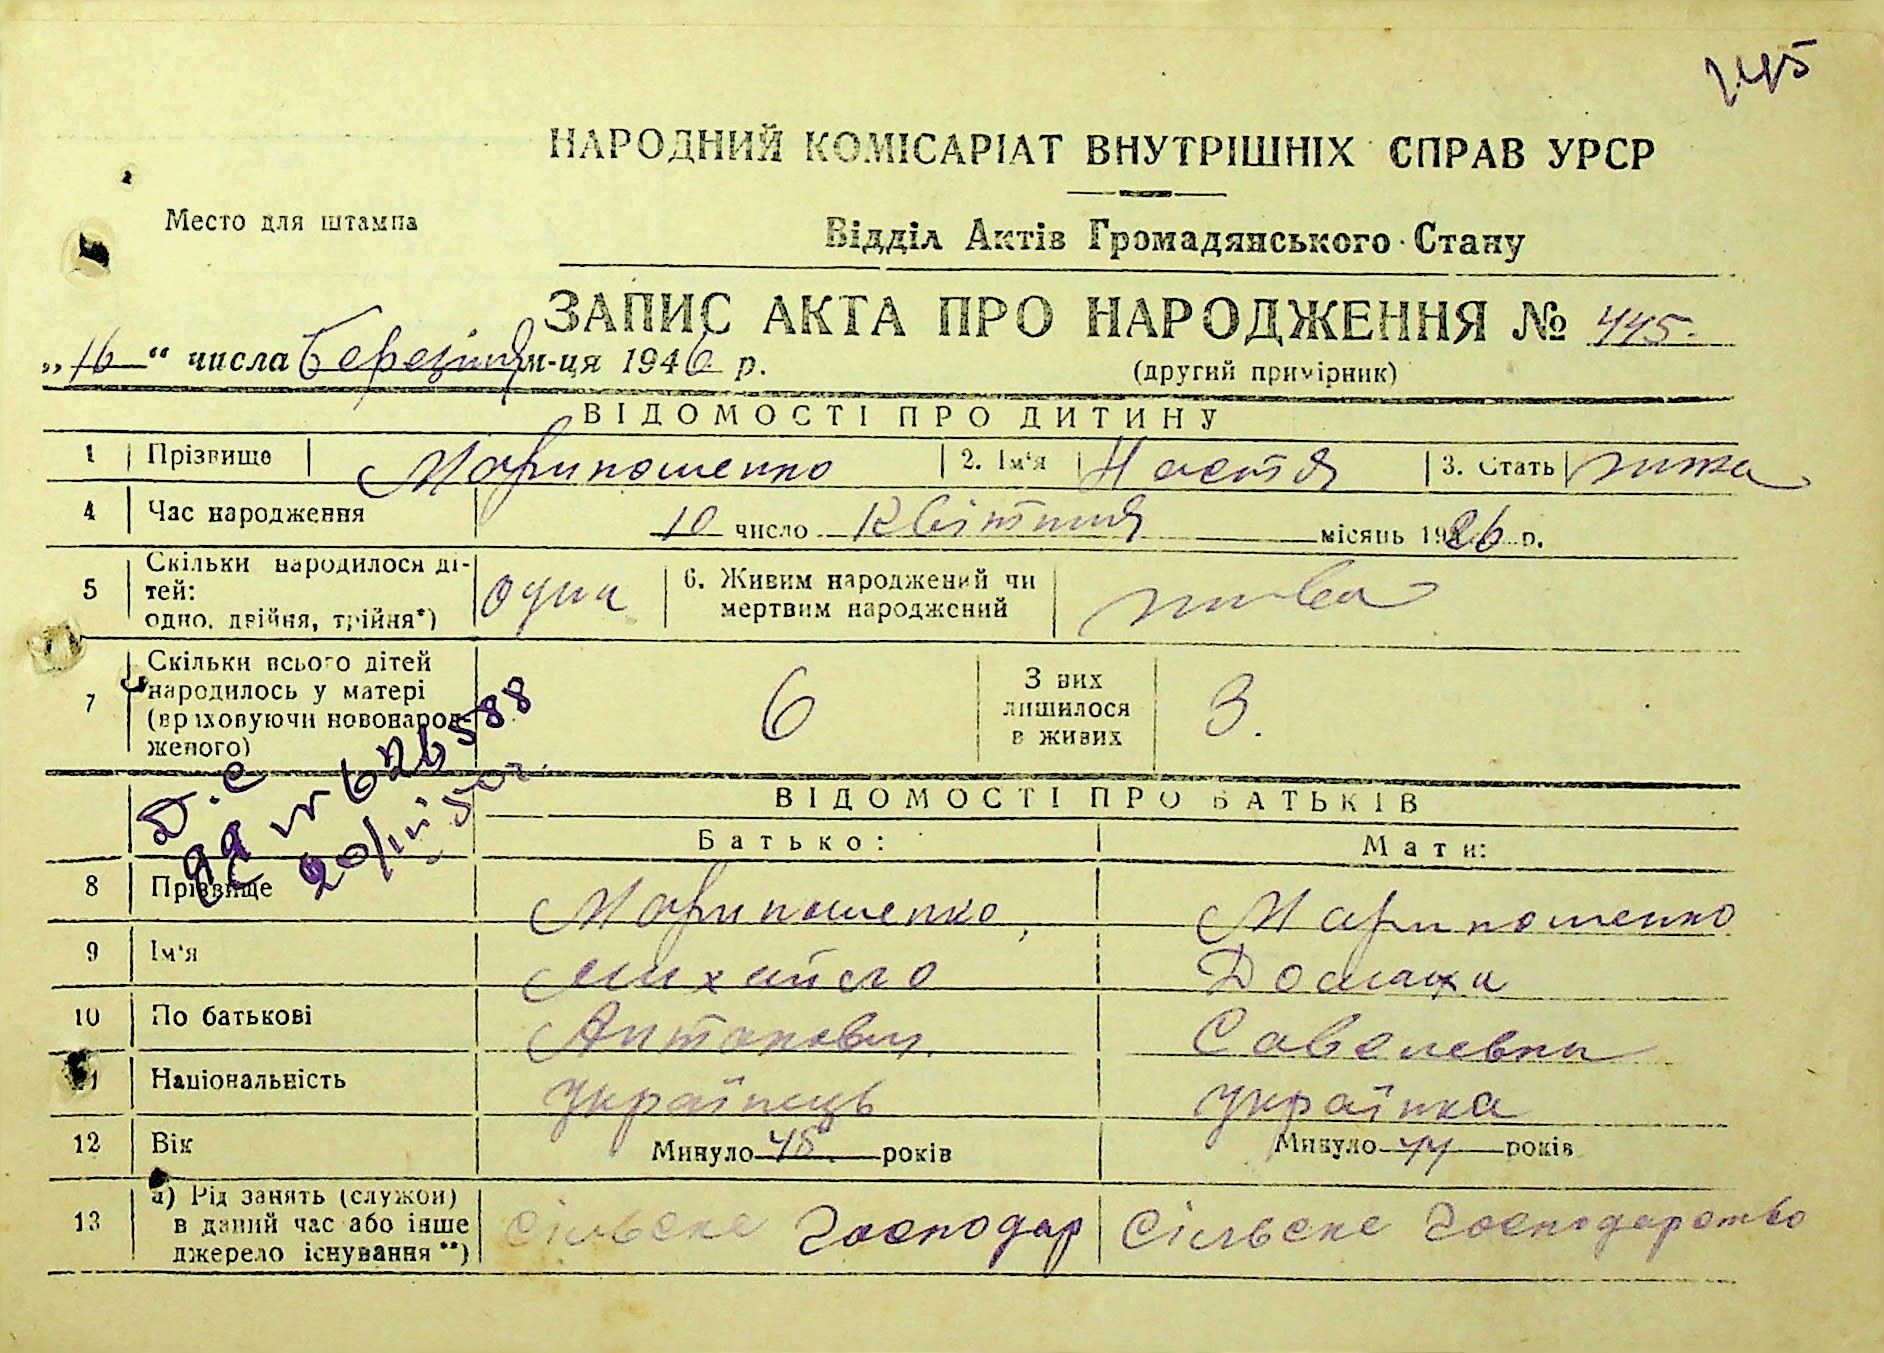 445
НАРОДНИЙ КОМІСАРІАТ ВНУТРІШНІХ СПРАВ УРСР
Место для штампа
Відділ Актів Громадянського Стану
ЗАПИС АКТА ПРО НАРОДЖЕННЯ № 445.
„16“ числа Березіня м-ця 1946 р.
(другий примірник)
ВІДОМОСТІ ПРО ДИТИНУ
1 Прізвище Марипошенко 2. Ім'я Настя 3. Стать жіжа
4 Час народження 10 число Квітння місяць 1926 р.
5 Скільки народилося дітей: одно, двійня, трійня*) одна 6. Живим народжений чи мертвим народжений жива
7 Скільки всього дітей народилось у матері (враховуючи новонародженого) 6 З них лишилося в живих 3.
№ 626588
ВІДОМОСТІ ПРО БАТЬКІВ
Батько: Мати:
8 Прізвище Марипошенко Марипошенко
9 Ім'я Михайло Домаха
10 По батькові Антонович Савелевна
11 Національність Українець Українка
12 Вік Минуло 48 років Минуло 44 років
13 а) Рід занять (служби) в даний час або інше джерело існування**) Сільске Господар Сільске Господарство